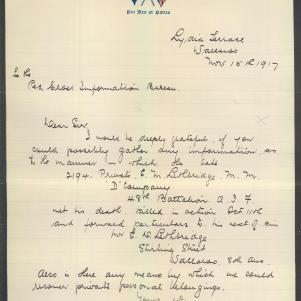 Pro Deo et Patria
Lydia Terrace
Wallaroo
Nov 15th 1917
To the
Red Cross Information Bureau.
Dear Sir,
I would be deeply grateful if you
could possibly gather any information as
to the manner in which the late
2194. Private E. M. Lethbridge, M. M.
D Company
48th Battalion A. I. F.
met his death. Killed in action Oct 11th
and forward particulars to his next of kin
Mr E. W. Lethbridge
Stirling Street
Wallaroo. Sth Aus.
Also is there any means by which we could
recover private personal belongings.
Yours